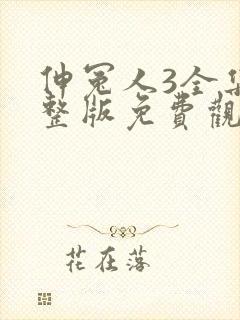 伸冤人3全集
整版免費觀
花在落